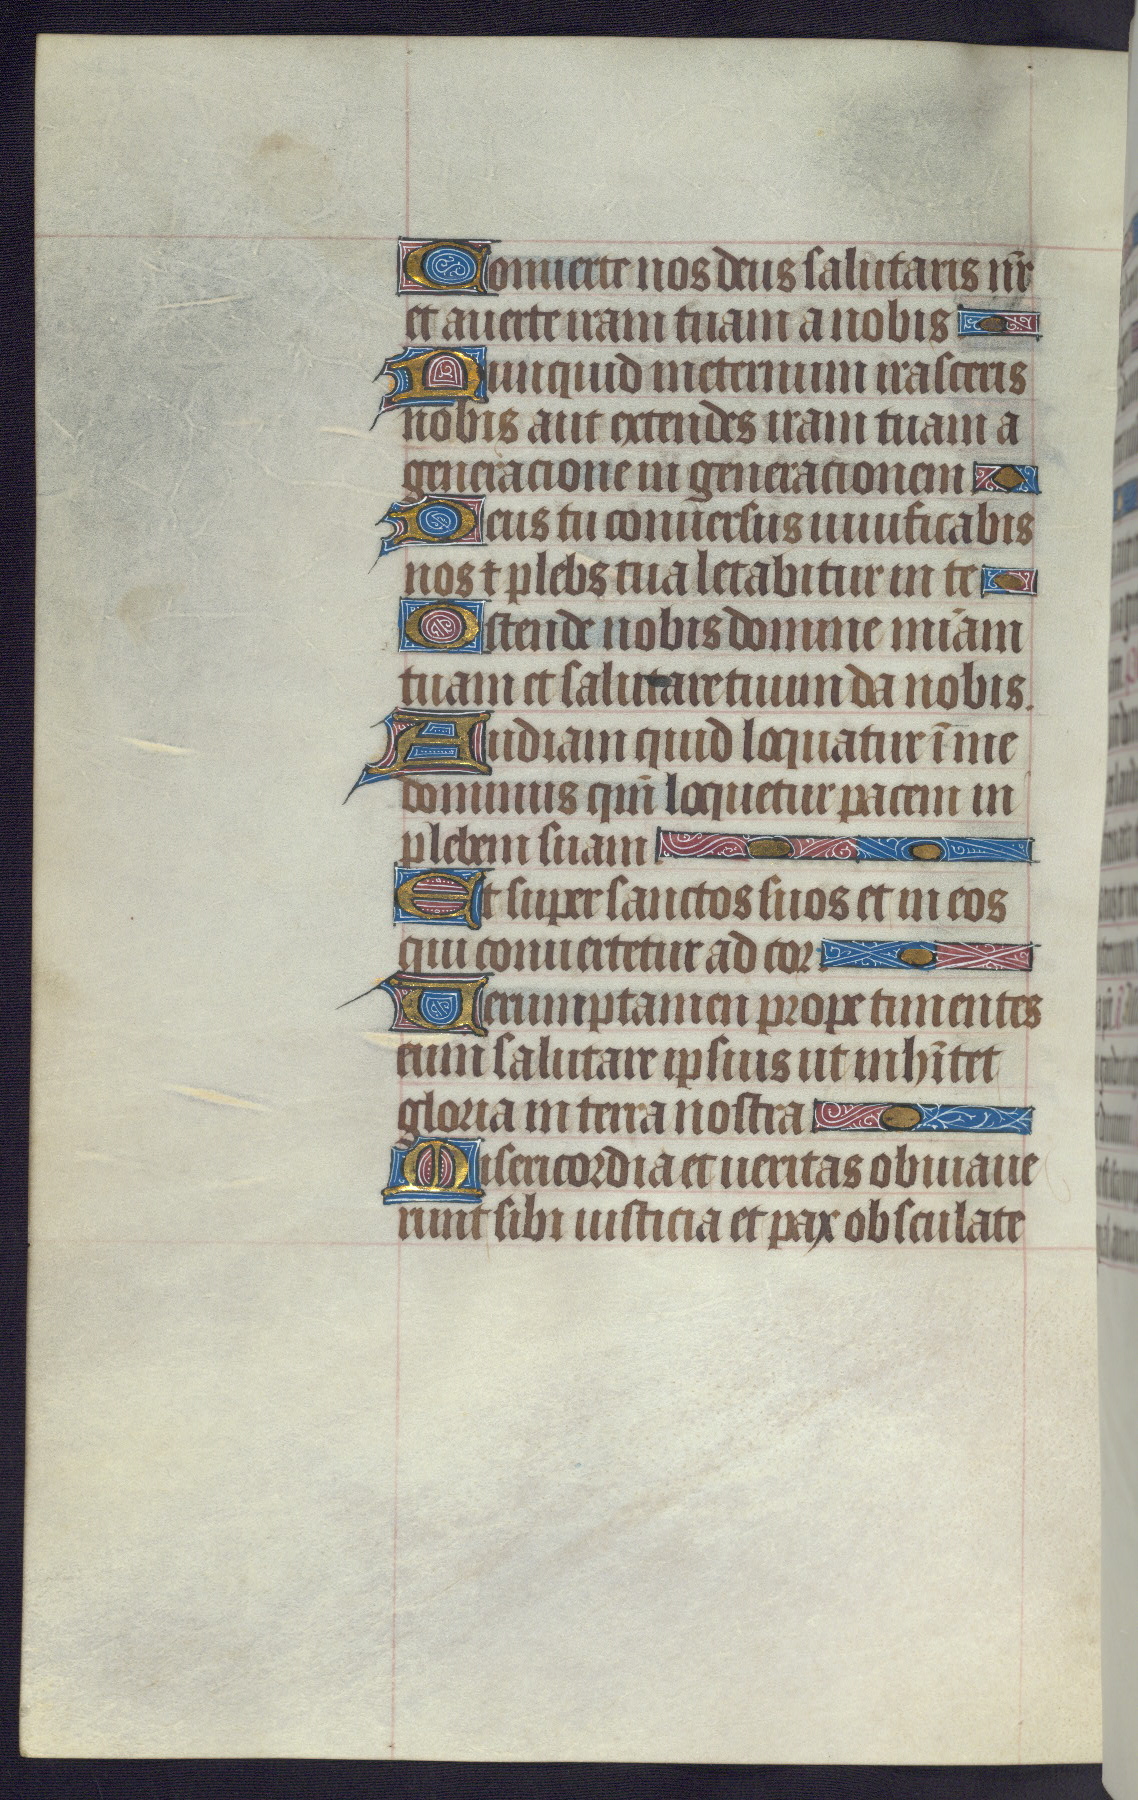 Conuerte nos deus salutaris nr̄
et auerte iram tuam a nobis
Nunquid ineternum irasceris
nobis aut extendes iram tuam a
generacione in generacionem
Deus tu conuersus uiuificabis
nos ⁊ plebs tua letabitur in te
Ostende nobis domine mīam
tuam et salutare tuum da nobis.
Audiam quid loquatur ī me
dominus qm̄ loquetur pacem in
plebem suam
Et super sanctos suos et in eos
qui conuertetur ad cor.
Uerumptamen prope timentes
eum salutare ipsius ut inhītet
gloria in terra nostra
Misericordia et ueritas obuiaue
runt sibi iusticia et pax obsculate